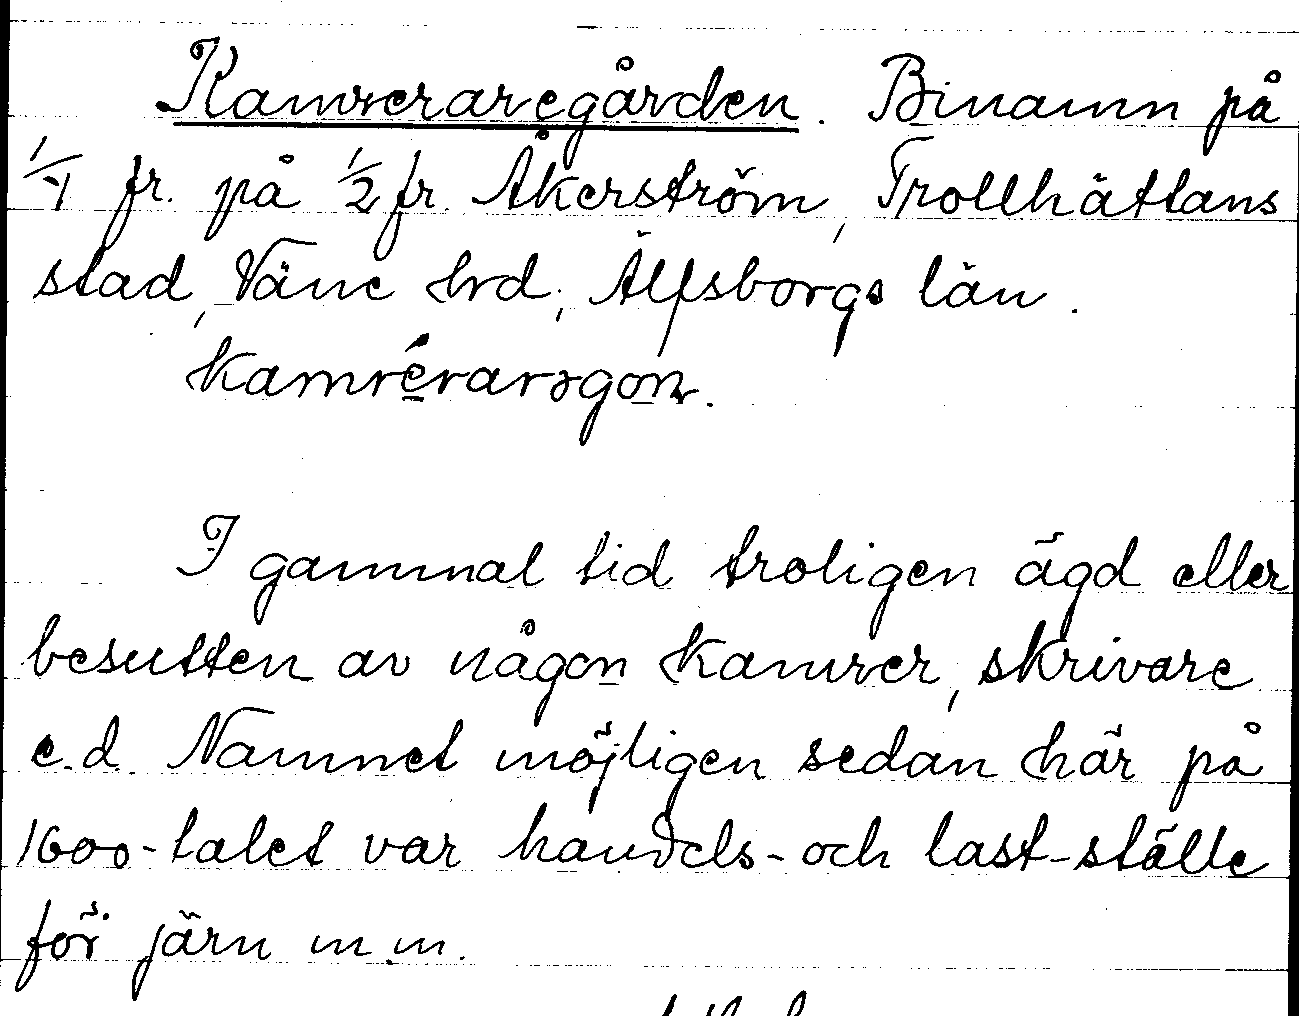 Kamreraregården. Binamn på
1/1 fr. på 1/2 fr Åkerström, Trollhättans
stad, Väne hrd, Älfsborgs län.
kamrérarəgon.
I gammal tid troligen ägd eller
besutten av någon kamrer, skrivare
e.d. Namnet möjligen sedan här på
1600-talet var handels- och last-ställe
för järn m.m.